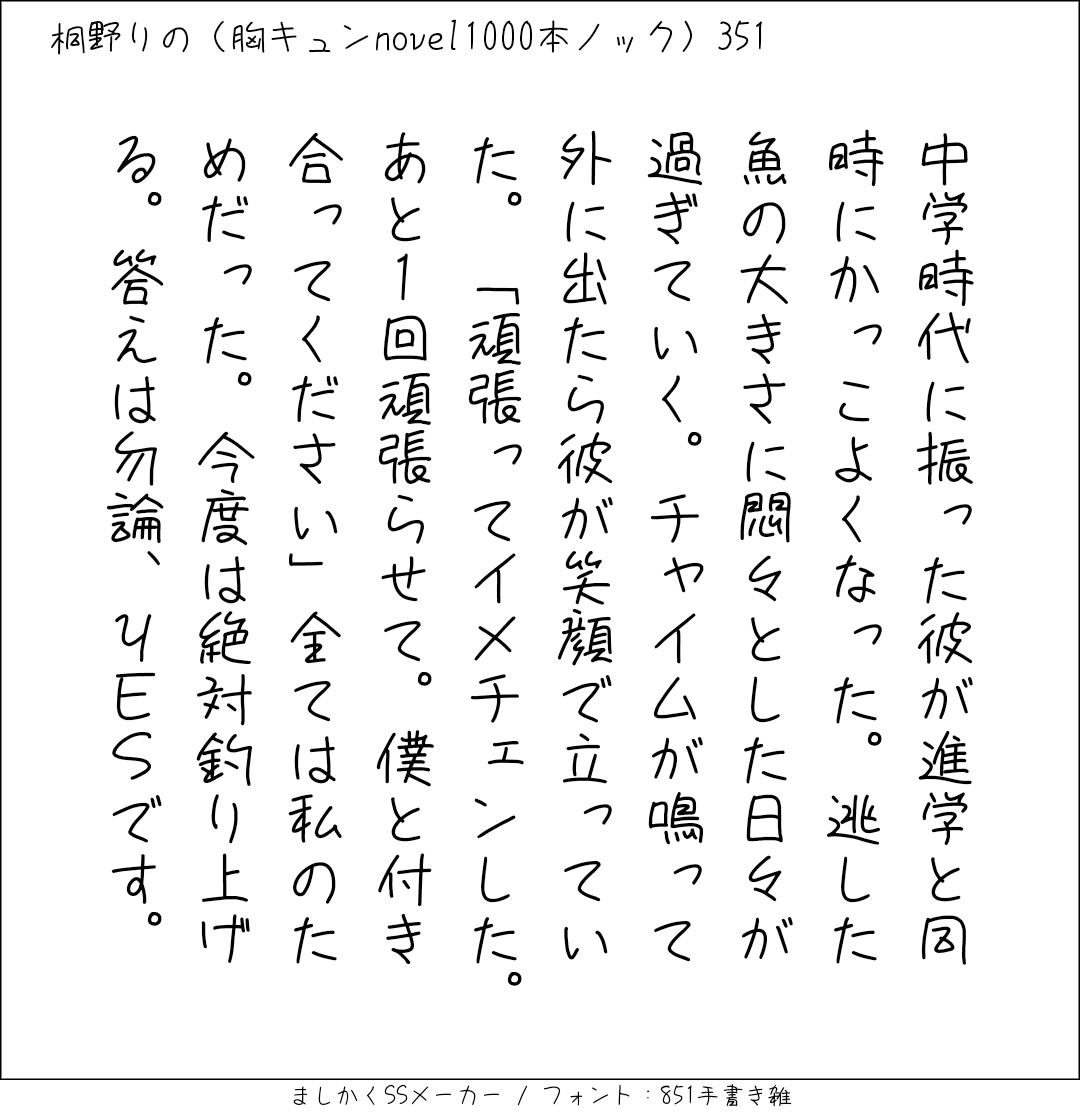 桐野りの（胸キュンnovel1000本ノック）351
中学時代に振った彼が進学と同
時にかっこよくなった。逃した
魚の大きさに悶々とした日々が
過ぎていく。チャイムが鳴って
外に出たら彼が笑顔で立ってい
た。「頑張ってイメチェンした。
あと1回頑張らせて。僕と付き
合ってください」全ては私のた
めだった。今度は絶対釣り上げ
る。答えは勿論、YESです。
ましかくSSメーカー / フォント：851手書き雑